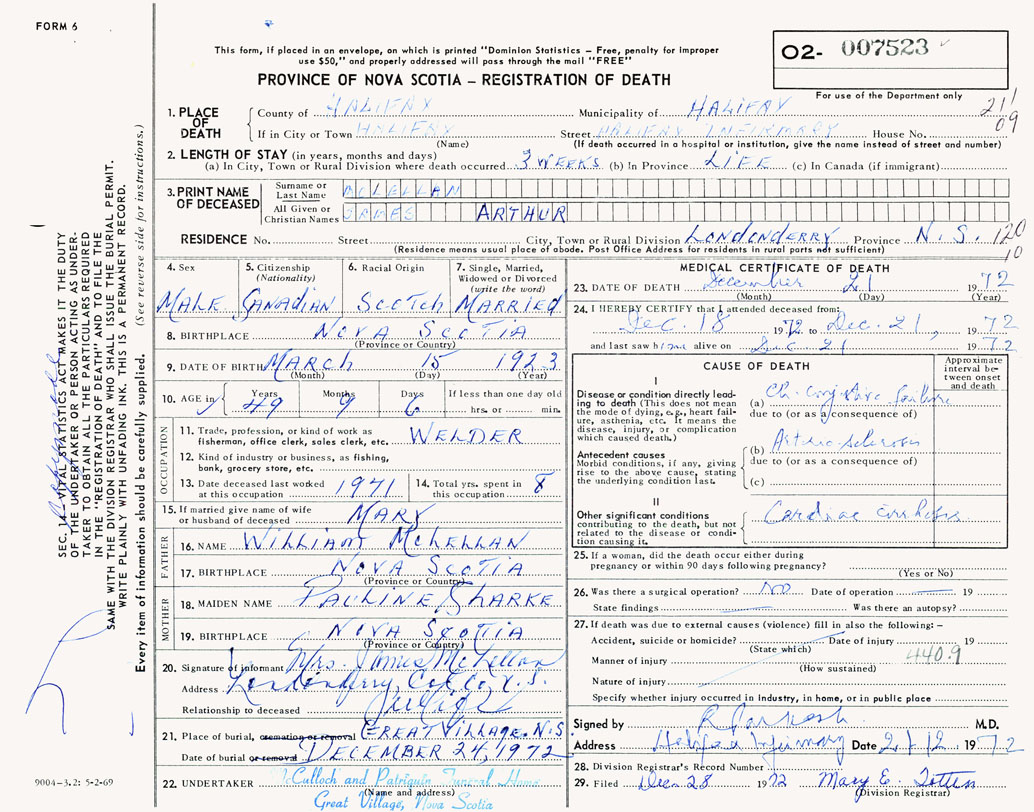 FORM 6
This form, if placed in an envelope, on which is printed "Dominion Statistics – Free, penalty for improper
use $50," and properly addressed will pass through the mail "FREE"
PROVINCE OF NOVA SCOTIA – REGISTRATION OF DEATH
O2- 007523
For use of the Department only
211
09
1. PLACE OF DEATH
County of HALIFAX Municipality of HALIFAX
If in City or Town HALIFAX Street HALIFAX INFIRMARY House No.
(Name) (If death occurred in a hospital or institution, give the name instead of street and number)
2. LENGTH OF STAY (in years, months and days)
(a) In City, Town or Rural Division where death occurred 3 WEEKS (b) In Province LIFE (c) In Canada (if immigrant)
3. PRINT NAME OF DECEASED
Surname or Last Name MCLELLAN
All Given or Christian Names JAMES ARTHUR
RESIDENCE No. Street City, Town or Rural Division LONDONDERRY Province N.S. 120
10
(Residence means usual place of abode. Post Office Address for residents in rural parts not sufficient)
4. Sex
MALE
5. Citizenship
(Nationality)
CANADIAN
6. Racial Origin
SCOTCH
7. Single, Married,
Widowed or Divorced
(write the word)
MARRIED
8. BIRTHPLACE NOVA SCOTIA
(Province or Country)
9. DATE OF BIRTH MARCH 15 1923
(Month) (Day) (Year)
10. AGE in Years Months Days If less than one day old
49 9 6 hrs. or min.
OCCUPATION
11. Trade, profession, or kind of work as
fisherman, office clerk, sales clerk, etc. WELDER
12. Kind of industry or business, as fishing,
bank, grocery store, etc.
13. Date deceased last worked
at this occupation 1971
14. Total yrs. spent in
this occupation 8
15. If married give name of wife
or husband of deceased MARY
FATHER
16. NAME WILLIAM MCLELLAN
17. BIRTHPLACE NOVA SCOTIA
(Province or Country)
MOTHER
18. MAIDEN NAME PAULINE SHARKE
19. BIRTHPLACE NOVA SCOTIA
(Province or Country)
20. Signature of informant Mrs. James McLellan
Address Londonderry Col. Co. N.S.
Relationship to deceased
21. Place of burial, cremation or removal GREAT VILLAGE. N.S
Date of burial or removal DECEMBER 24, 1972
22. UNDERTAKER McCulloch and Patriquin Funeral Home
(Name and address)
Great Village, Nova Scotia
MEDICAL CERTIFICATE OF DEATH
23. DATE OF DEATH December 21 1972
(Month) (Day) (Year)
24. I HEREBY CERTIFY that I attended deceased from:
Dec. 18 1972 to Dec. 21, 1972
and last saw him alive on Dec 21 1972
CAUSE OF DEATH
Approximate
interval be-
tween onset
and death
I
Disease or condition directly lead-
ing to death (This does not mean
the mode of dying, e.g., heart fail-
ure, asthenia, etc. It means the
disease, injury, or complication
which caused death.)
(a) Ch. Congestive failure
due to (or as a consequence of)
Antecedent causes
Morbid conditions, if any, giving
rise to the above cause, stating
the underlying condition last.
(b) Arteriosclerosis
due to (or as a consequence of)
(c)
II
Other significant conditions
contributing to the death, but not
related to the disease or condi-
tion causing it.
Cardiac cirrhosis
25. If a woman, did the death occur either during
pregnancy or within 90 days following pregnancy?
(Yes or No)
26. Was there a surgical operation? NO Date of operation 19
State findings Was there an autopsy?
27. If death was due to external causes (violence) fill in also the following: –
Accident, suicide or homicide? Date of injury 19
(State which)
Manner of injury 440.9
(How sustained)
Nature of injury
Specify whether injury occurred in Industry, in home, or in public place
Signed by R Parkash M.D.
Address Halifax Infirmary Date 21/12 1972
28. Division Registrar's Record Number
29. Filed Dec 28 1972 Mary E. Totten
(Division Registrar)
SEC. 14 – VITAL STATISTICS ACT MAKES IT THE DUTY
OF THE UNDERTAKER OR PERSON ACTING AS UNDER-
TAKER TO OBTAIN ALL THE PARTICULARS REQUIRED
IN THE "REGISTRATION OF DEATH" AND TO FILE THE
SAME WITH THE DIVISION REGISTRAR WHO SHALL ISSUE THE BURIAL PERMIT.
WRITE PLAINLY WITH UNFADING INK. THIS IS A PERMANENT RECORD.
Every item of information should be carefully supplied. (See reverse side for instructions.)
9004-3.2: 5-2-69